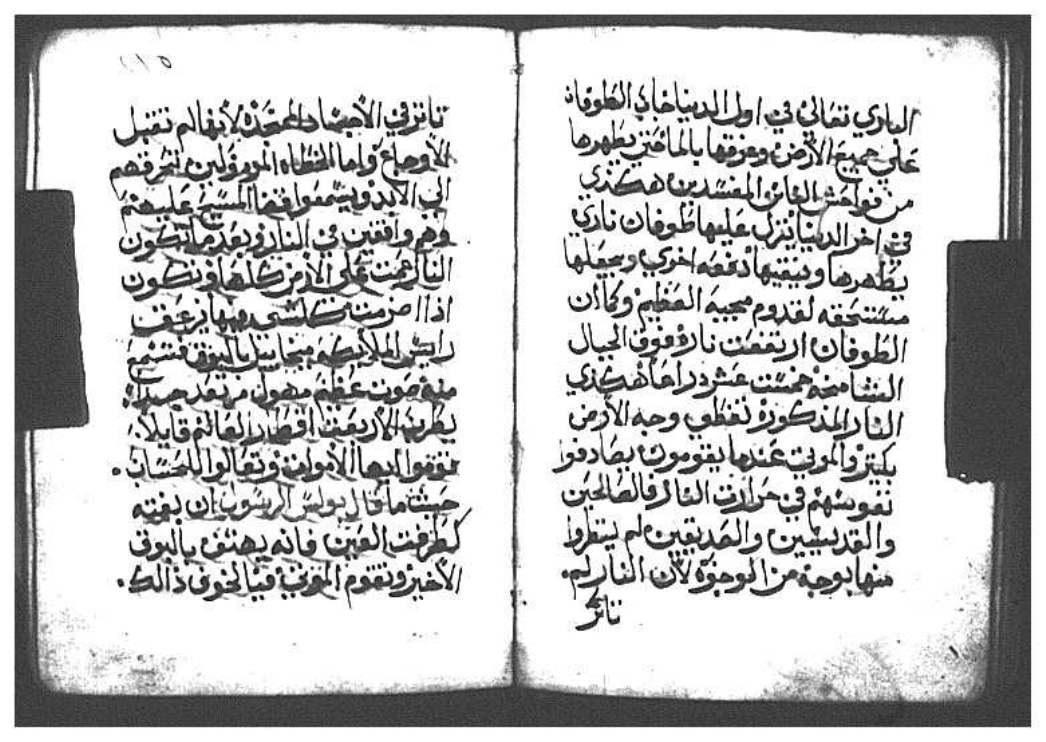 الباري تعالى في اول الدنيا جاب الطوفان
على جميع الأرض وغرقها بالماء حتى يطهرها
من فواحش الناس المفسدين هكذي
في اخر الدنيا ينزل عليها طوفان ناري
يطهرها وينقيها دفعه اخري ويجعلها
مستحقه لقدوم مجيه العظيم وكما ان
الطوفان ارتفعت ناره فوق الجبال
الشامخه خمست عشر دراعا هكذي
النار المذكورة تغطي وجه الأرض
بكيتر والموتي عندما يقومون يصادفوا
نفوسهم في حرارت النار فالصالحين
والقديسين والصديقين لم ينظروا
منها بوجه من الوجوه لأن النار لم.
تاثر
٢١٥
تاثر في الأجساد الممجدة لأنها لم تقبل
الأوجاع واما الخطاه المرذولين تحرقهم
الي الأبد ويسمعوا قضا المسيح عليهم
وهم واقفين في النار وبعد ما تكون
النار عمت على الأرض كلها وتكون
اذا اضرمت كلشي فيها يزعق
رايس الملايكه ميخاييل بالبوق فتسمع
منه صوت عظيم مهول مرتعد جدا
يطرب الأربعت اقطار العالم قايلا
قوموا ايها الأموات وتعالوا للحساب.
حيث ما قال بولس الرسول ان بغته
كطرفت العين فانه يهتف بالبوق
الأخير وتقوم الموتي فيا لخوف ذالك.